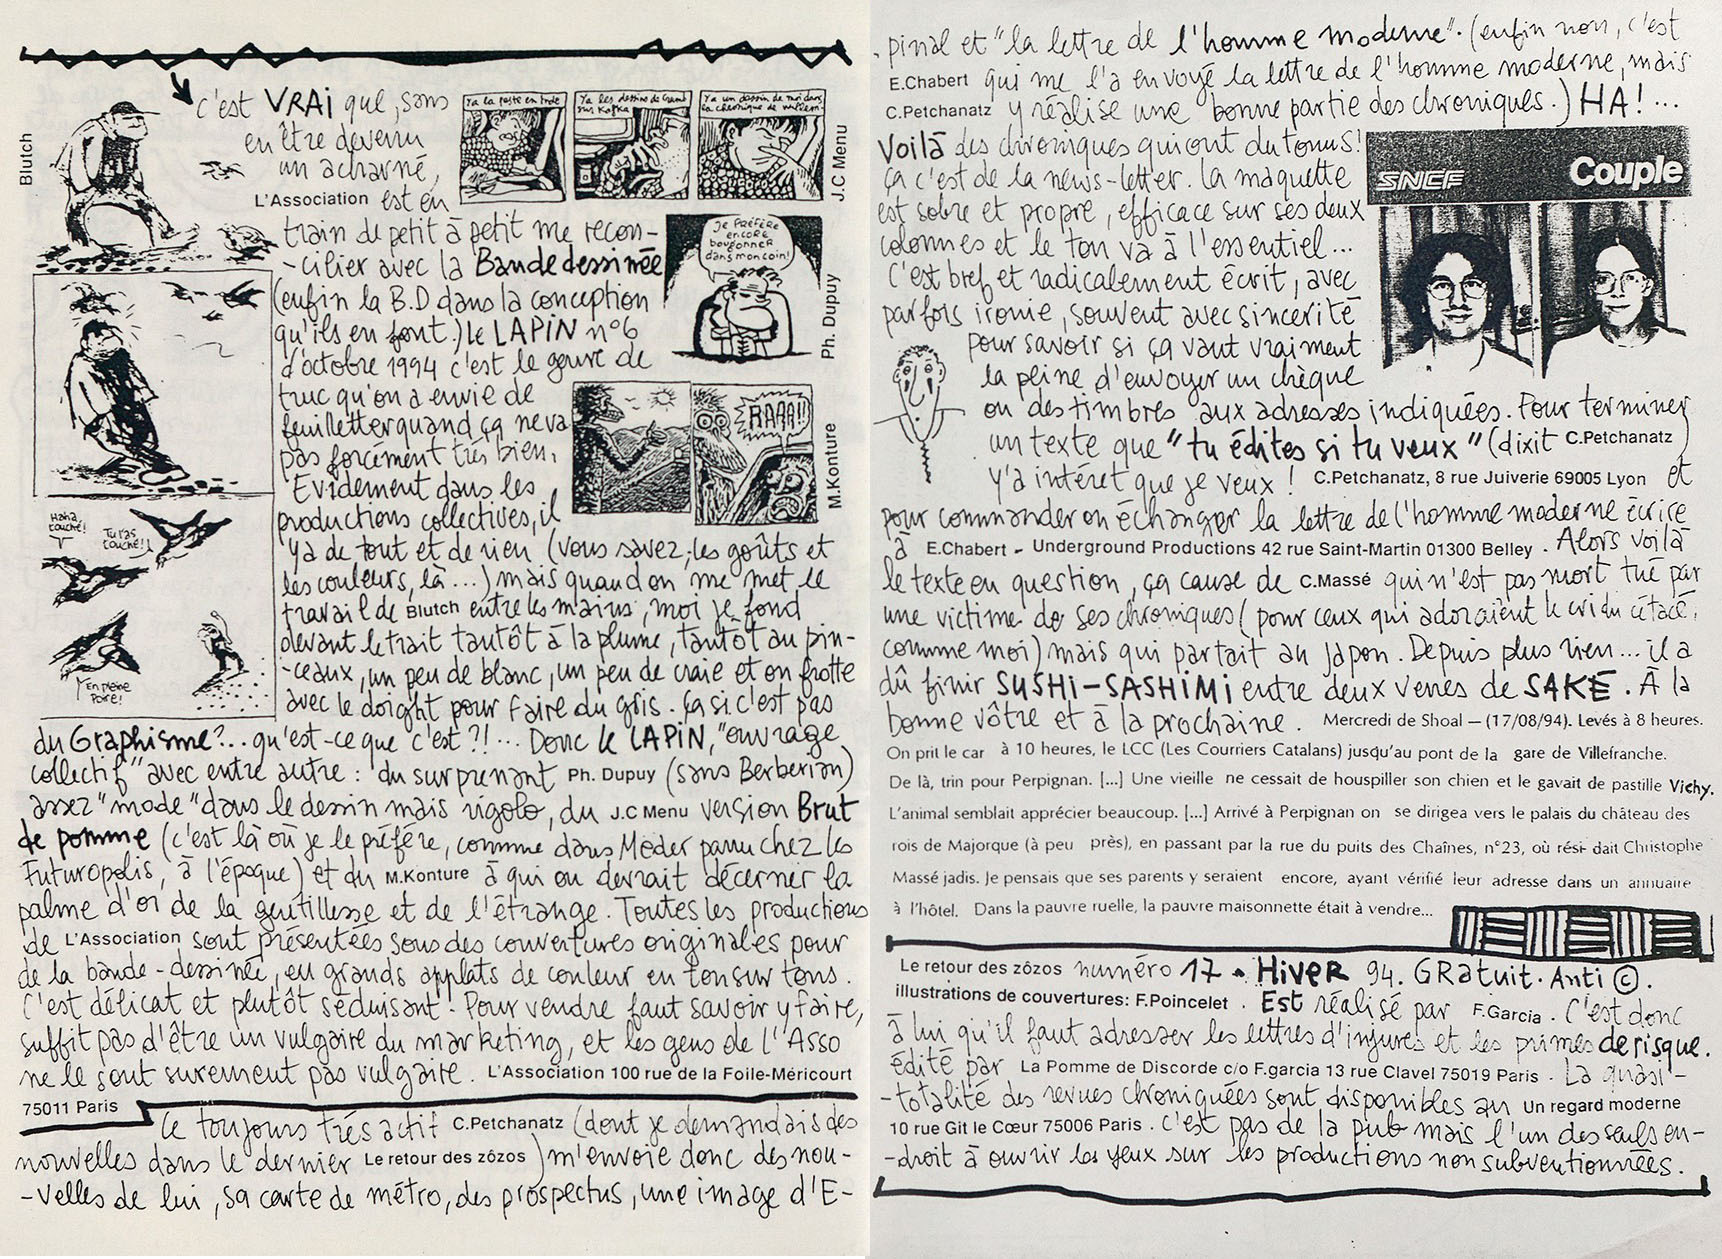 Blutch
c'est VRAi que, sans
en être devenu
un acharné,
L'Association est en
train de petit à petit me recon-
-cilier avec la Bande dessinée
(enfin la B.D dans la conception
qu'ils en font.) le LAPiN n°6
d'octobre 1994 c'est le genre de
truc qu'on a envie de
feuilletter quand ça ne va
pas forcément très bien.
Evidement dans les
productions collectives, il
y a de tout et de rien (vous savez, les goûts et
les couleurs, là...) mais quand on me met le
travail de Blutch entre les mains, moi je fond
devant le trait tantôt à la plume, tantôt au pin-
-ceaux, un peu de blanc, un peu de craie et on frotte
avec le doight pour faire du gris. ça si c'est pas
du Graphisme?... qu'est-ce que c'est?!... Donc le LAPiN, "ouvrage
collectif" avec entre autre : du surprenant Ph. Dupuy (sans Berberian)
assez "mode" dans le dessin mais rigolo, du J.C Menu version Brut
de pomme (c'est là où je le préfère, comme dans Meder paru chez les
Futuropolis, à l'époque) et du M.Konture à qui on devrait décerner la
palme d'or de la gentillesse et de l'étrange. Toutes les productions
de L'Association sont présentées sous des couvertures originales pour
de la bande-dessinée, en grands applats de couleur en ton sur tons.
C'est délicat et plutôt séduisant. Pour vendre faut savoir y faire,
suffit pas d'être un vulgaire du marketing, et les gens de l'Asso
ne le sont surement pas vulgaire. L'Association 100 rue de la Foile-Méricourt
75011 Paris
Ya la poste en grève
Ya les dessins de Crumb sur Kafka
Ya un dessin de moi dans la chronique de
J.C Menu
Je PRéFèRe
encore
bougonner
dans mon coin!
Ph. Dupuy
RAAA!!
M.Konture
Haha,
touché!
Tu l'as
touché!
En pleine
poire!
Le toujours très actif C.Petchanatz (dont je demandais des
nouvelles dans le dernier Le retour des zôzos) m'envoie donc des nou-
-velles de lui, sa carte de métro, des prospectus, une image d'E-
pinal et "la lettre de l'homme moderne". (enfin non, c'est
E.Chabert qui me l'a envoyé la lettre de l'homme moderne, mais
C.Petchanatz y réalise une bonne partie des chroniques.) HA!...
Voilà des chroniques qui ont du tonus!
ça c'est de la news-letter. la maquette
est sobre et propre, efficace sur ses deux
colonnes et le ton va à l'essentiel...
C'est bref et radicalement écrit, avec
parfois ironie, souvent avec sincerité
pour savoir si ça vaut vraiment
la peine d'envoyer un chèque
ou des timbres aux adresses indiquées. Pour terminer
un texte que "tu édites si tu veux" (dixit C.Petchanatz)
y'a intéret que je veux! C.Petchanatz, 8 rue Juiverie 69005 Lyon et
pour commander ou échanger la lettre de l'homme moderne écrire
à E.Chabert - Underground Productions 42 rue Saint-Martin 01300 Belley. Alors voilà
le texte en question, ça cause de C.Massé qui n'est pas mort tué par
une victime de ses chroniques (pour ceux qui adoraient le cri du cétacé,
comme moi) mais qui partait au japon. Depuis plus rien... il a
dû finir SUSHi-SASHiMi entre deux verres de SAKE. À la
bonne vôtre et à la prochaine. Mercredi de Shoal — (17/08/94). Levés à 8 heures.
On prit le car à 10 heures, le LCC (Les Courriers Catalans) jusqu'au pont de la gare de Villefranche.
De là, trin pour Perpignan. [...] Une vieille ne cessait de houspiller son chien et le gavait de pastille Vichy.
L'animal semblait apprécier beaucoup. [...] Arrivé à Perpignan on se dirigea vers le palais du château des
rois de Majorque (à peu près), en passant par la rue du puits des Chaînes, n°23, où rési- dait Christophe
Massé jadis. Je pensais que ses parents y seraient encore, ayant vérifié leur adresse dans un annuaire
à l'hôtel. Dans la pauvre ruelle, la pauvre maisonnette était à vendre...
SNCF Couple
Le retour des zôzos numéro 17 - HiveR 94. GRatuit. Anti ©.
illustrations de couvertures: F.Poincelet. Est réalisé par F.Garcia. C'est donc
à lui qu'il faut adresser les lettres d'injures et les primes de risque.
édité par La Pomme de Discorde c/o F.garcia 13 rue Clavel 75019 Paris. La quasi-
-totalité des revues chroniquées sont disponibles au Un regard moderne
10 rue Git le Cœur 75006 Paris. C'est pas de la pub mais l'un des seuls en-
-droit à ouvrir les yeux sur les productions non subventionnées.